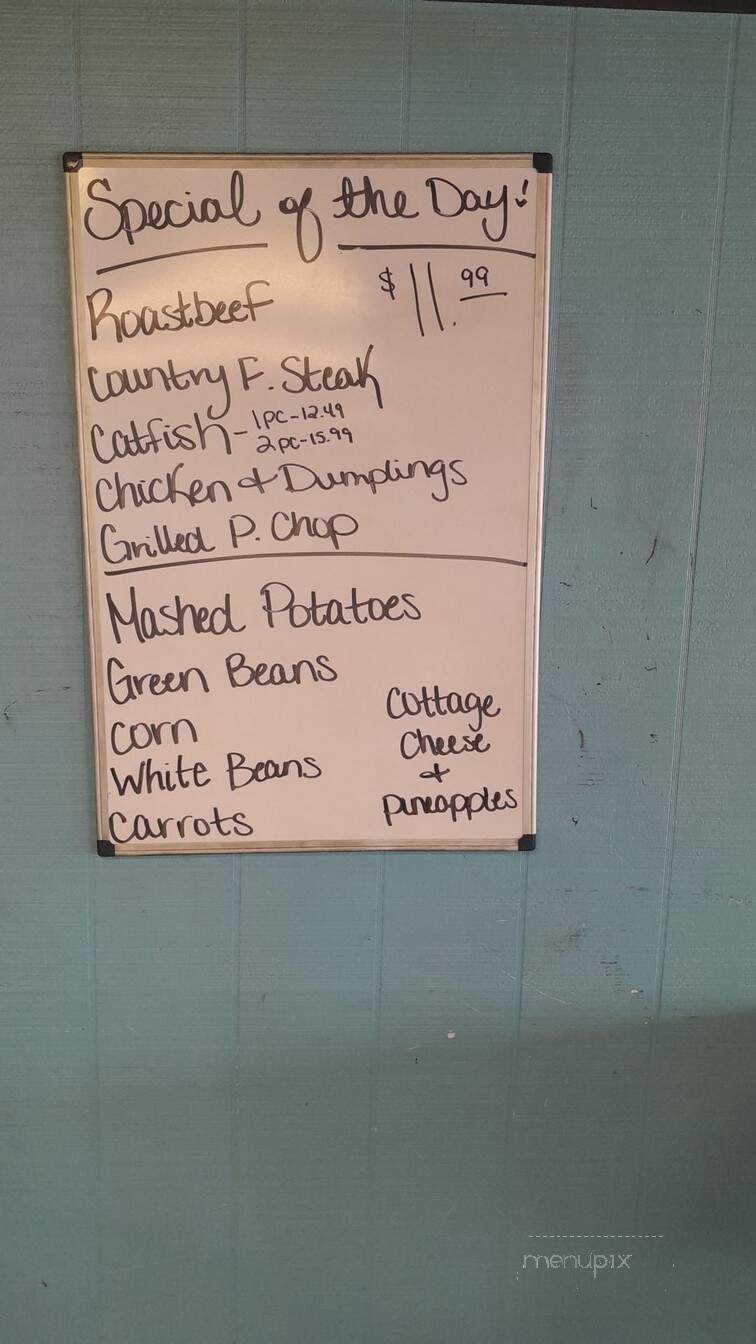 Special of the Day!
Roastbeef $11.99
Country F. Steak
Catfish - 1pc - 12.49
2pc - 15.99
Chicken & Dumplings
Grilled P. Chop
Mashed Potatoes
Green Beans
Corn
White Beans
Carrots
Cottage
Cheese
&
Pineapples
menupix